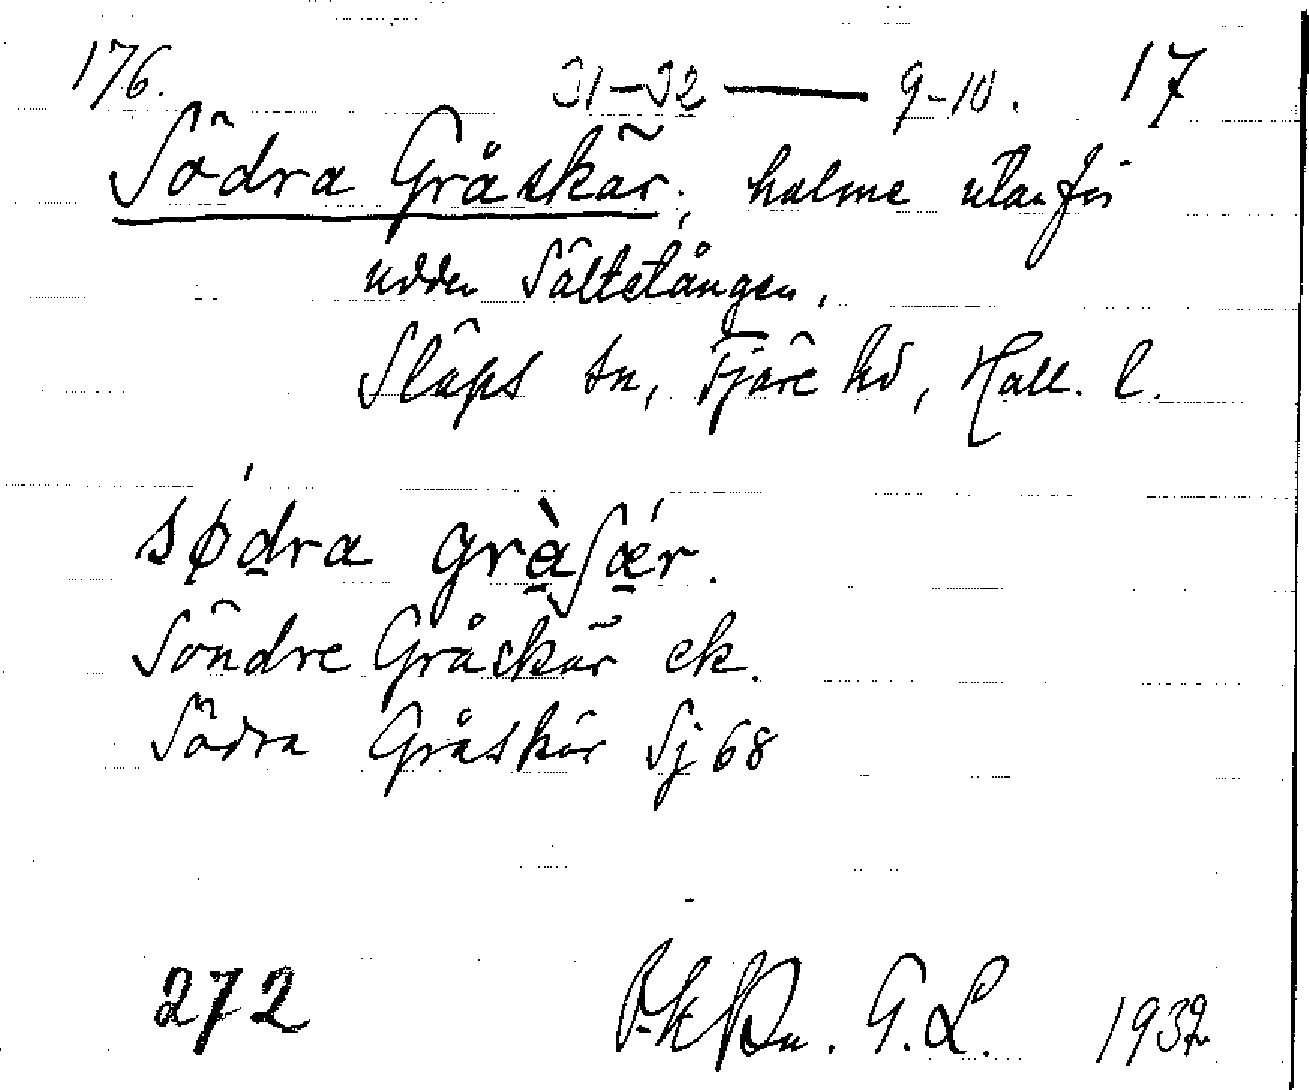 176. 31–32 — 9–10. 17
Södra Gråskär; holme utanför
udden Sältetången.
Släps sn, Fjäre hd, Hall. l.
sødra gràʃǽr.
Söndre Gråskär ek.
Södra Gråskär Sj 68
272 G. L. 1932